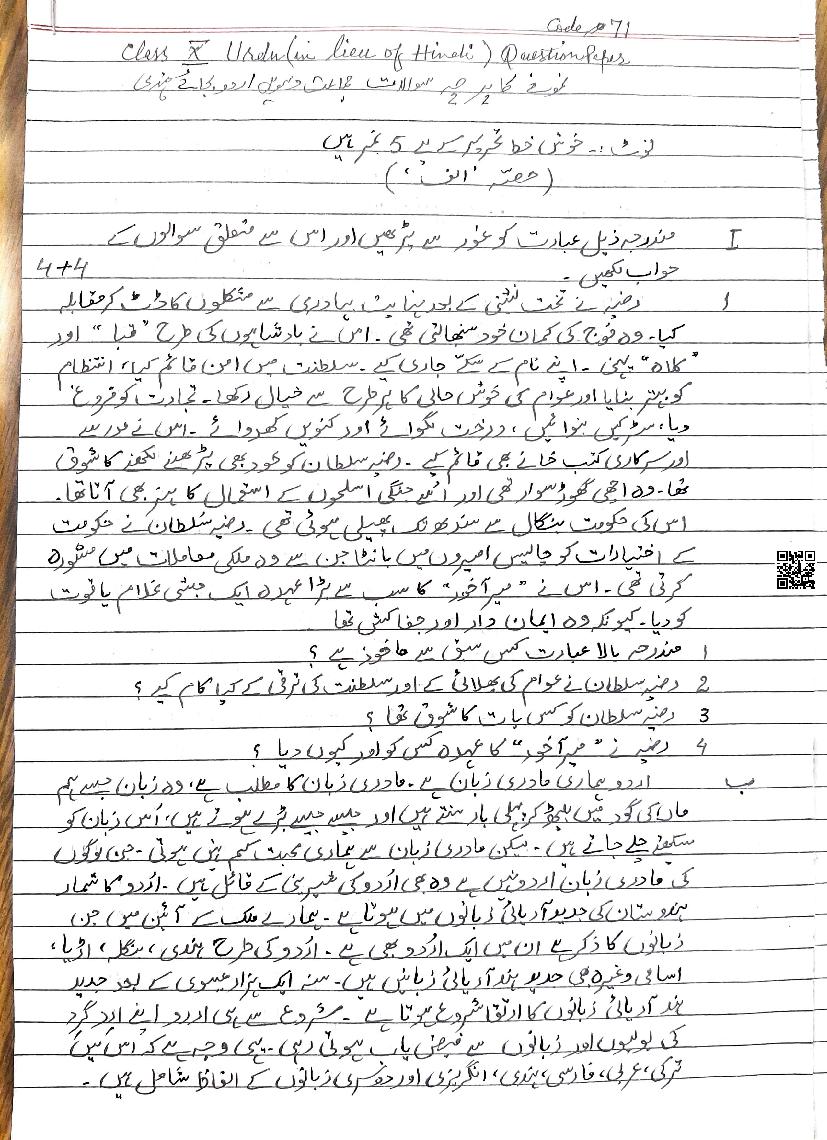 Code no 71
Class X Urdu (in lieu of Hindi) Question Paper
نمونے کا پرچہ سوالات جماعت دسویں اردو بجائے ہندی
نوٹ :۔ خوش خط تحریر کے لیے 5 نمبر ہیں
(حصّہ 'الف')
I مندرجہ ذیل عبارت کو غور سے پڑھیں اور اس سے متعلق سوالوں کے
جواب لکھیں ۔ 4+4
ا رضیہ نے تخت نشینی کے بعد نہایت بہادری سے مشکلوں کا ڈٹ کر مقابلہ
کیا۔ وہ فوج کی کمان خود سنبھالتی تھی ۔ اس نے بادشاہوں کی طرح "قبا" اور
"کلاہ" پہنی ۔ اپنے نام کے سکّے جاری کیے ۔ سلطنت میں امن قائم کیا، انتظام
کو بہتر بنایا اور عوام کی خوش حالی کا ہر طرح سے خیال رکھا۔ تجارت کو فروغ
دیا، سڑکیں بنوائیں، درخت لگوائے اور کنویں کھدوائے ۔ اس نے مدرسے
اور سرکاری کتب خانے بھی قائم کیے ۔ رضیہ سلطان کو خود بھی پڑھنے لکھنے کا شوق
تھا۔ وہ اچھی گھوڑ سوار تھی اور اسے جنگی اسلحوں کے استعمال کا ہنر بھی آتا تھا۔
اس کی حکومت بنگال سے سندھ تک پھیلی ہوئی تھی ۔ رضیہ سلطان نے حکومت
کے اختیارات کو چالیس امیروں میں بانٹا جن سے وہ ملکی معاملات میں مشورہ
کرتی تھی۔ اس نے "میر آخور" کا سب سے بڑا عہدہ ایک حبشی غلام یاقوت
کو دیا۔ کیونکہ وہ ایمان دار اور جفاکش تھا
1 مندرجہ بالا عبارت کس سبق سے ماخوذ ہے ؟
2 رضیہ سلطان نے عوام کی بھلائی کے اور سلطنت کی ترقی کے کیا کام کیے ؟
3 رضیہ سلطان کو کس بات کا شوق تھا ؟
4 رضیہ نے "میر آخور" کا عہدہ کس کو اور کیوں دیا ؟
ب اردو ہماری مادری زبان ہے ۔ مادری زبان کا مطلب ہے، وہ زبان جسے ہم
ماں کی گود میں پہلی بار سنتے ہیں اور جیسے جیسے بڑے ہوتے ہیں، اُس زبان کو
سیکھتے چلے جاتے ہیں ۔ لیکن مادری زبان سے ہماری محبت کم نہیں ہوتی ۔ جن لوگوں
کی مادری زبان اردو نہیں ہے وہ بھی اُردو کی شیرینی کے قائل ہیں ۔ اُردو کا شمار
ہندوستان کی جدید آریائی زبانوں میں ہوتا ہے ۔ ہمارے ملک کے آئین میں جن
زبانوں کا ذکر ہے ان میں ایک اُردو بھی ہے ۔ اُردو کی طرح ہندی، بنگلہ، اڑیا،
آسامی وغیرہ بھی جدید ہند آریائی زبانیں ہیں۔ سنہ ایک ہزار عیسوی کے بعد جدید
ہند آریائی زبانوں کا ارتقا شروع ہوتا ہے ۔ شروع سے ہی اردو اپنے ارد گرد
کی بولیوں اور زبانوں سے فیض یاب ہوتی رہی ۔ یہی وجہ ہے کہ اس میں
ترکی، عربی، فارسی، ہندی، انگریزی اور دوسری زبانوں کے الفاظ شامل ہیں ۔